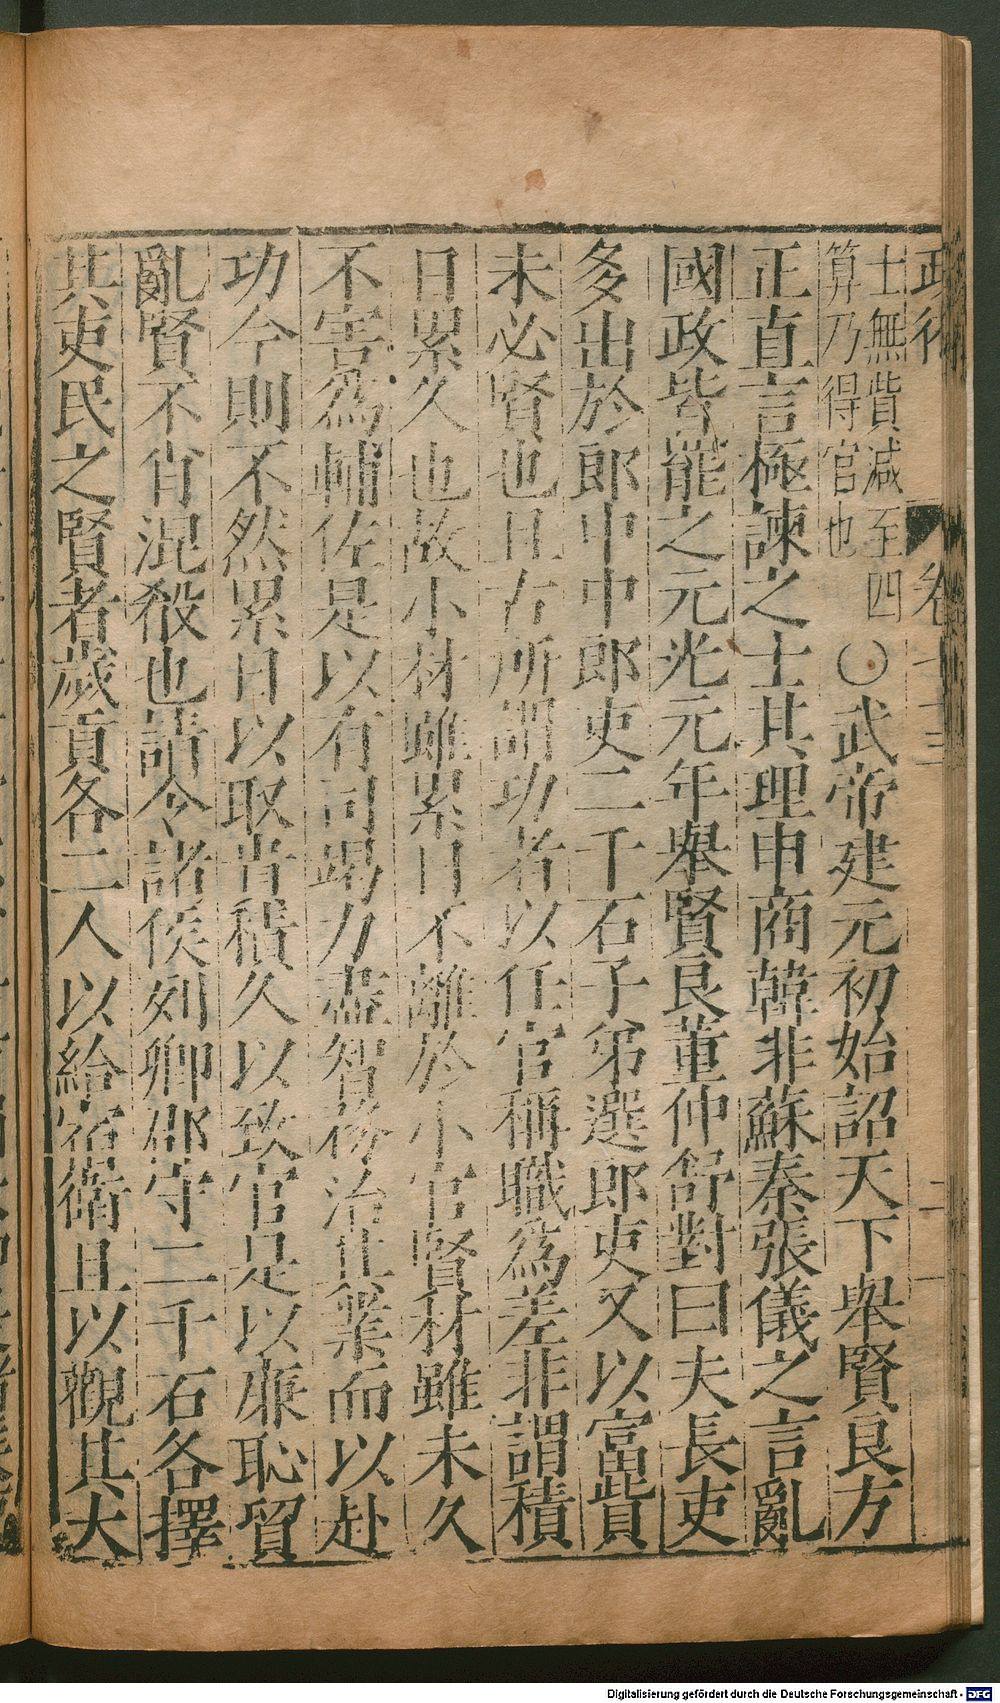 士無貲减至四
算乃得官也
〇武帝建元初始詔天下舉賢良方
正直言極諫之士其理申商韓非蘇秦張儀之言亂
國政皆罷之元光元年舉賢良董仲舒對曰夫長吏
多出於郎中中郎吏二千石子弟選郎吏又以富貲
未必賢也且古所謂功者以任官稱職爲差非謂積
日累久也故小材雖累日不離於小官賢材雖未久
不害爲輔佐是以有司竭力盡智務治其業而以赴
功今則不然累日以取貴積久以致官是以廉恥貿
亂賢不肖混殽也請令諸侯列卿郡守二千石各擇
其吏民之賢者歲貢各二人以給宿衛且以觀其大
Digitalisierung gefördert durch die Deutsche Forschungsgemeinschaft - DFG